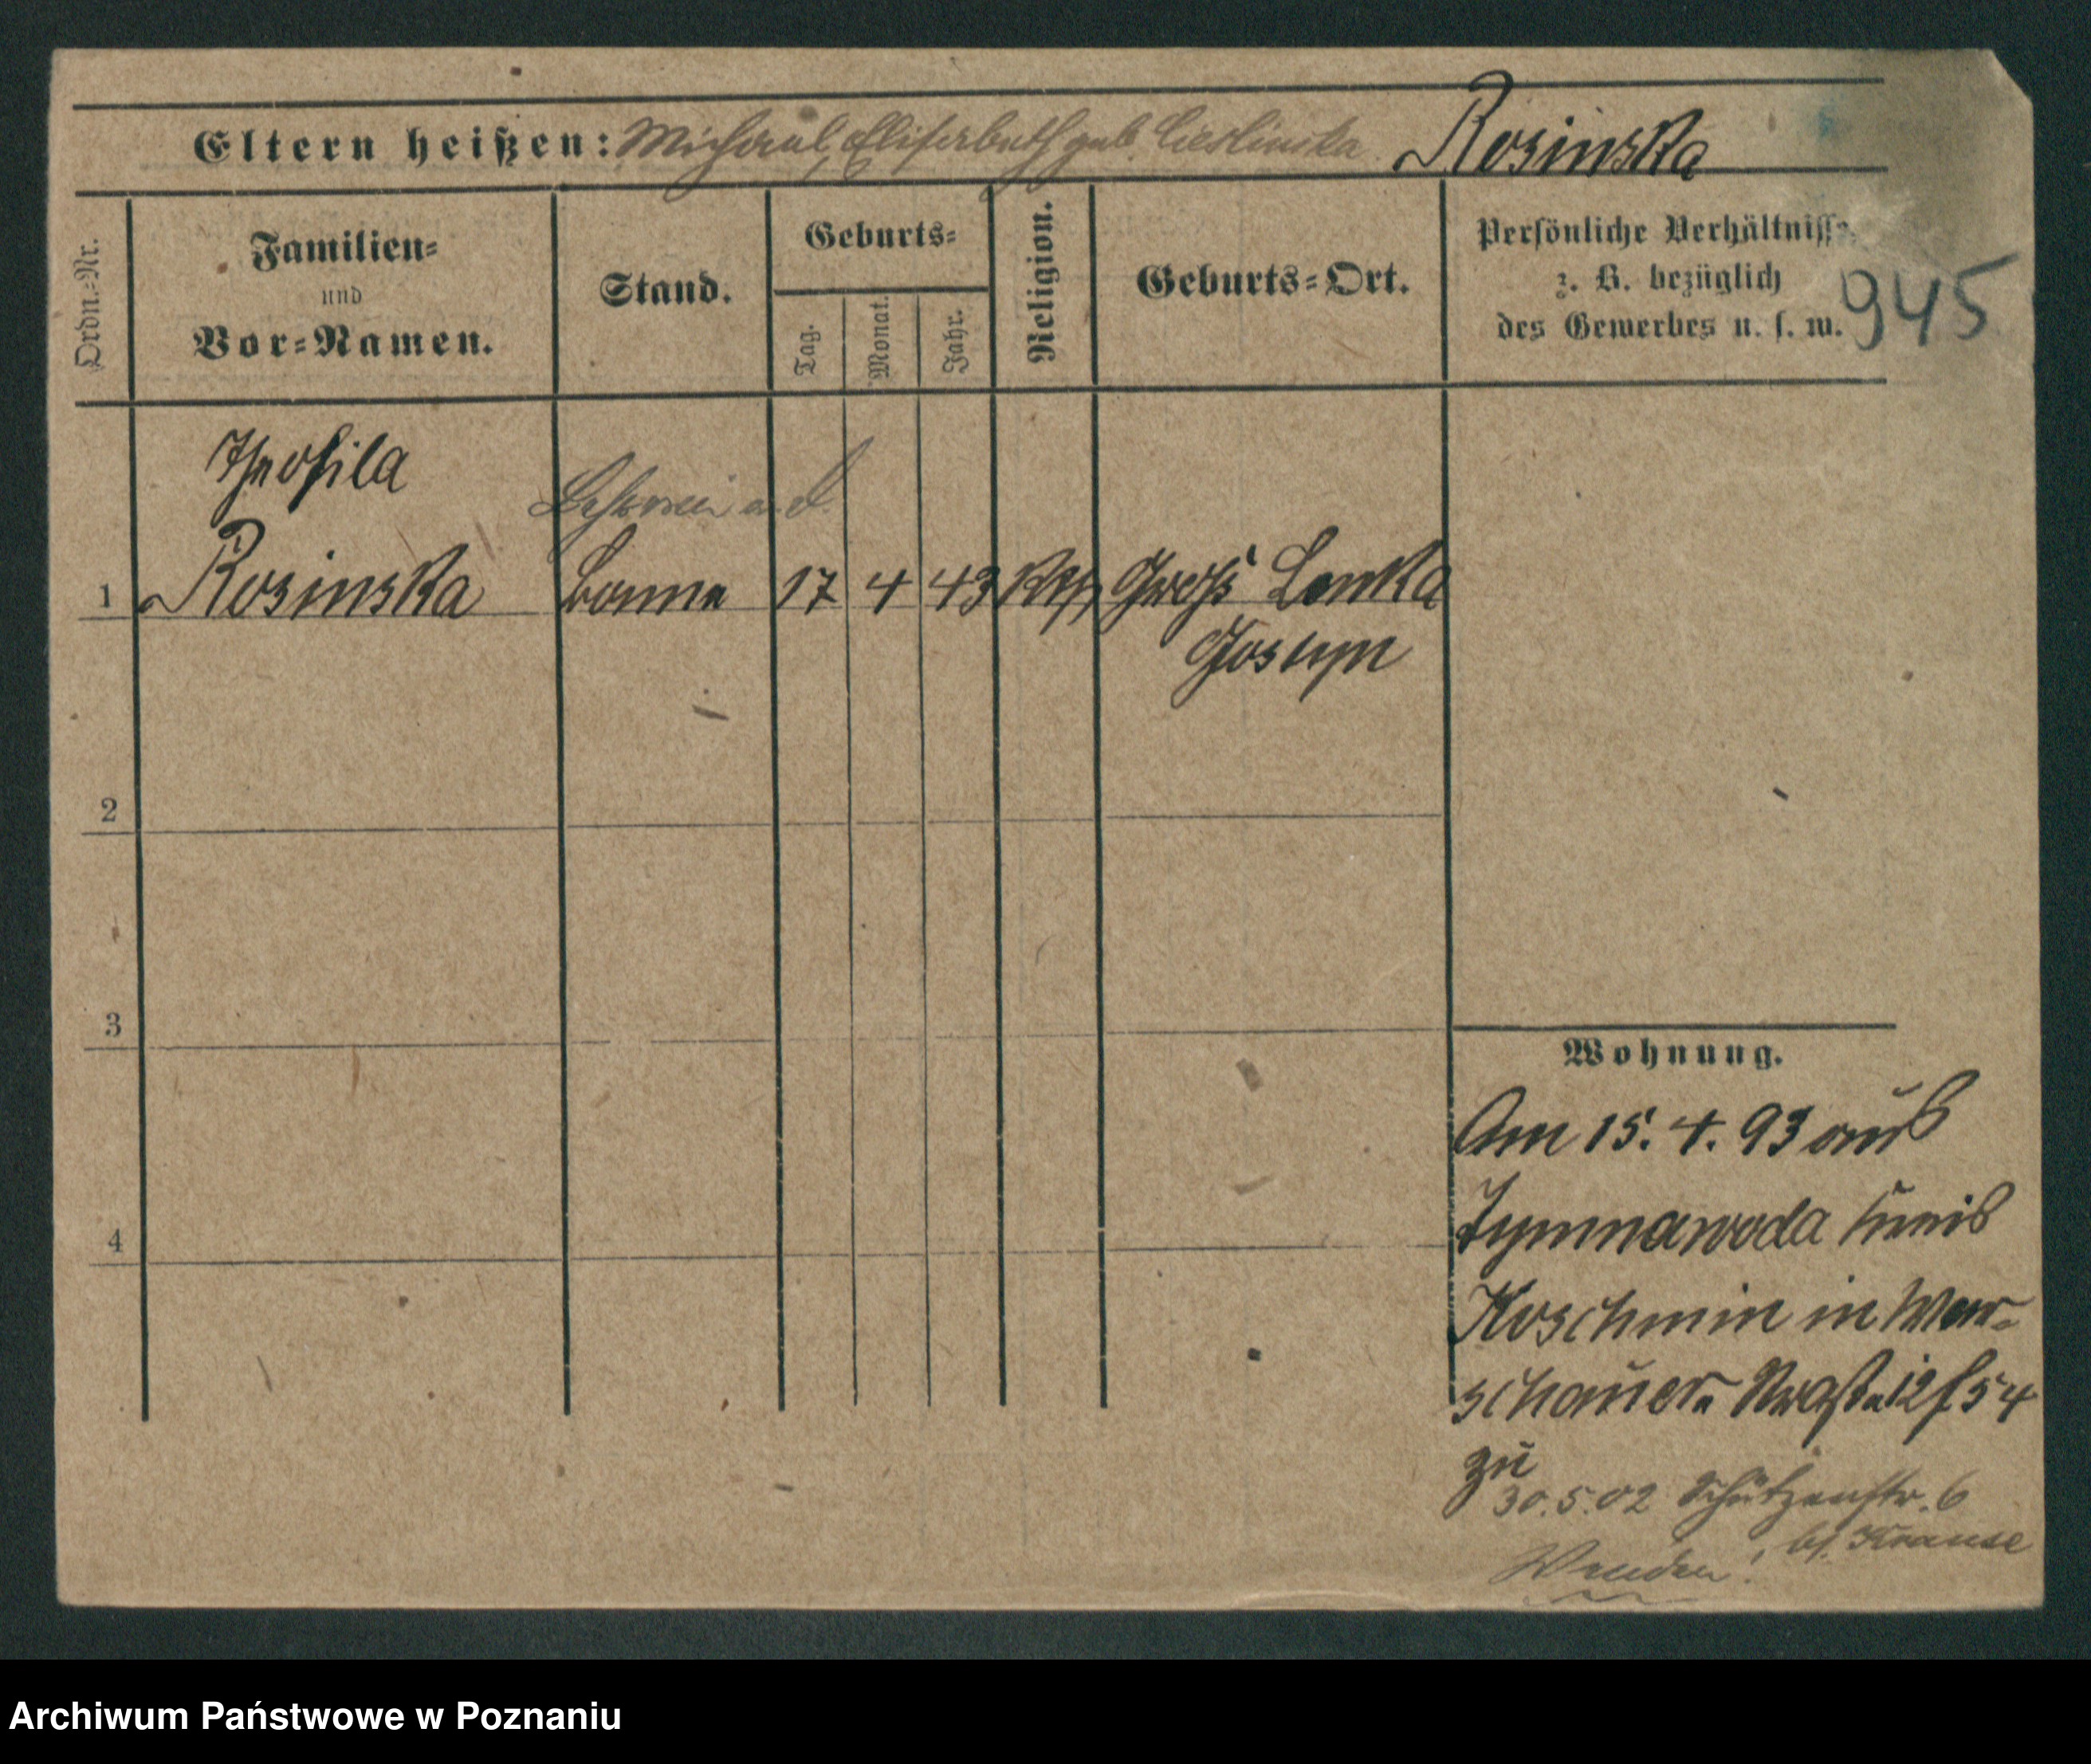 Eltern heißen: Michael, Elisabeth geb. Cieslinska Rosinska
Ordn.-Nr.
Familien=
und
Vor=Namen.
Stand.
Geburts=
Tag.
Monat.
Jahr.
Religion.
Geburts=Ort.
Persönliche Verhältnisse,
z. B. bezüglich
des Gewerbes u. s. w.
945
Theofila
Lehrerin a. d.
1 Rosinska Bonne 17 4 43 kth Groß Lenka
Gostyn
2
3
4
Wohnung.
Am 15. 4. 93 aus
Zymnawoda Kreis
Koschmin in War-
schauer Straße 12 f 54
zu
30.5.02 Schützenstr. 6
bf. Krause
Wenden!
Archiwum Państwowe w Poznaniu